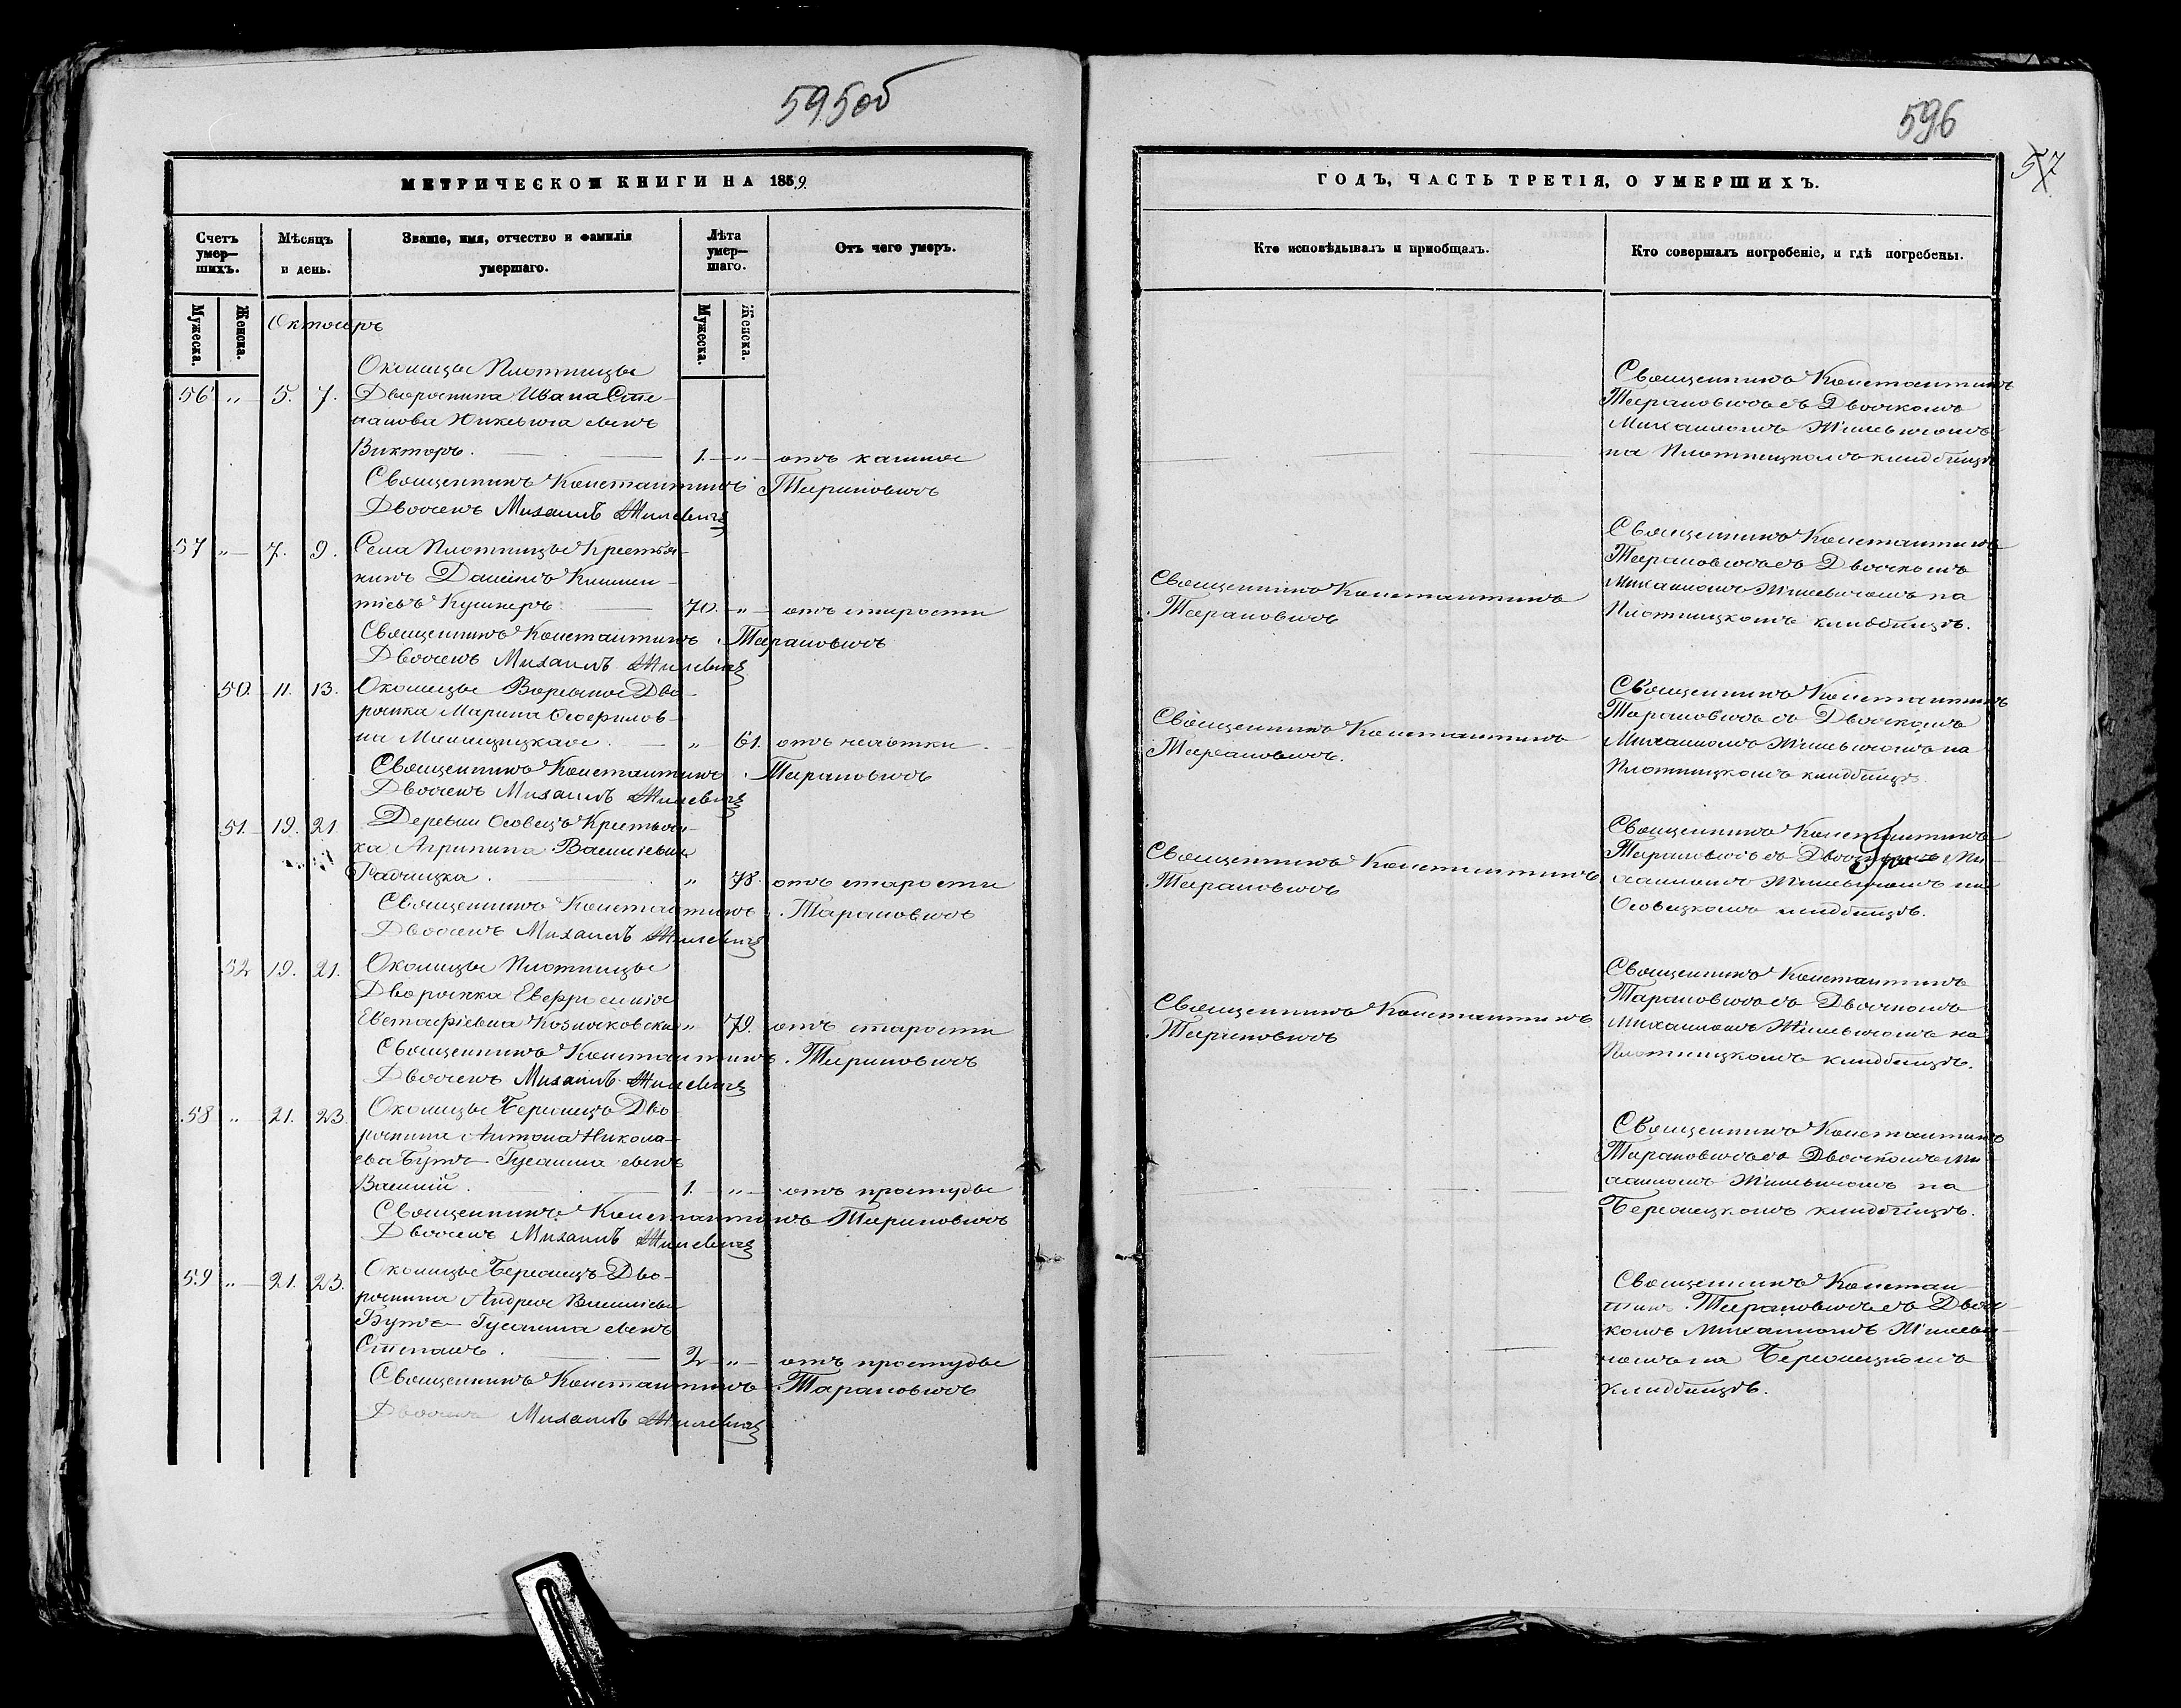 595об
МЕТРИЧЕСКОЙ КНИГИ НА 1859.
Счетъ умер—шихъ.
Мѣсяцъ и день.
Званіе, имя, отчество и фамилія умершаго.
Лѣта умер—шаго.
Отъ чего умеръ.
Мужеска.
Женска.
Мужеска.
Женска.
Октобръ
Околицы Плотницы
56 „ 5. 7. Дворянина Ивана Сте-
панова сынъ
Викторъ. 1. „ отъ кашля
Священникъ Константинъ Тарановичъ
Дьячекъ Михаилъ Жилевичъ
57 „ 7. 9. Села Плотницы Крестья-
нинъ Даніилъ Климен-
тіевъ Кушнеръ. 70. „ отъ старости
Священникъ Константинъ Тарановичъ
Дьячекъ Михаилъ Жилевичъ
50. 11. 13. Околицы Дво-
рянка Марина
на „ 61. отъ чахотки
Священникъ Константинъ Тарановичъ
Дьячекъ Михаилъ Жилевичъ
51. 19. 21. Деревни Осовецъ Крестьян-
ка Агрипина Васильева
Радчицка. „ 78. отъ старости
Священникъ Константинъ Тарановичъ
Дьячекъ Михаилъ Жилевичъ
52 19. 21. Околицы Плотницы
Дворянка Евфросинія
Евстафіевна „ 79. отъ старости
Священникъ Константинъ Тарановичъ
Дьячекъ Михаилъ Жилевичъ
58 „ 21. 23. Околицы Бережецъ Дво-
рянина Антона Никола-
ева Бутъ-Гусаима сынъ
Василій. 1. „ отъ простуды
Священникъ Константинъ Тарановичъ
Дьячекъ Михаилъ Жилевичъ
59 „ 21. 23. Околицы Бережецъ Дво-
рянина Андрея Василіева
Бутъ-Гусаима сынъ
Степанъ. 2 „ отъ простуды
Священникъ Константинъ Тарановичъ
Дьячекъ Михаилъ Жилевичъ
596
57
ГОДЪ, ЧАСТЬ ТРЕТІЯ, О УМЕРШИХЪ.
Кто исповѣдывалъ и пріобщалъ.
Кто совершалъ погребеніе, и гдѣ погребены.
Священникъ Константинъ
Тарановичъ съ Дьячкомъ
Михаиломъ Жилевичомъ
на Плотницкомъ кладбищѣ
Священникъ Константинъ
Тарановичъ
Священникъ Константинъ
Тарановичъ съ Дьячкомъ
Михаиломъ Жилевичомъ на
Плотницкомъ кладбищѣ.
Священникъ Константинъ
Тарановичъ.
Священникъ Константинъ
Тарановичъ съ Дьячкомъ
Михаиломъ Жилевичомъ на
Плотницкомъ кладбищѣ.
Священникъ Константинъ
Тарановичъ
Священникъ Константинъ
Тарановичъ съ Дьячкомъ Ми-
хаиломъ Жилевичомъ на
Осовецкомъ кладбищѣ.
Священникъ Константинъ
Тарановичъ
Священникъ Константинъ
Тарановичъ съ Дьячкомъ
Михаиломъ Жилевичомъ на
Плотницкомъ кладбищѣ.
Священникъ Константинъ
Тарановичъ съ Дьячкомъ Ми-
хаиломъ Жилевичомъ на
Бережецкомъ кладбищѣ.
Священникъ Констан-
тинъ Тарановичъ съ Дьяч-
комъ Михаиломъ Жилеви-
чомъ на Бережецкомъ
кладбищѣ.